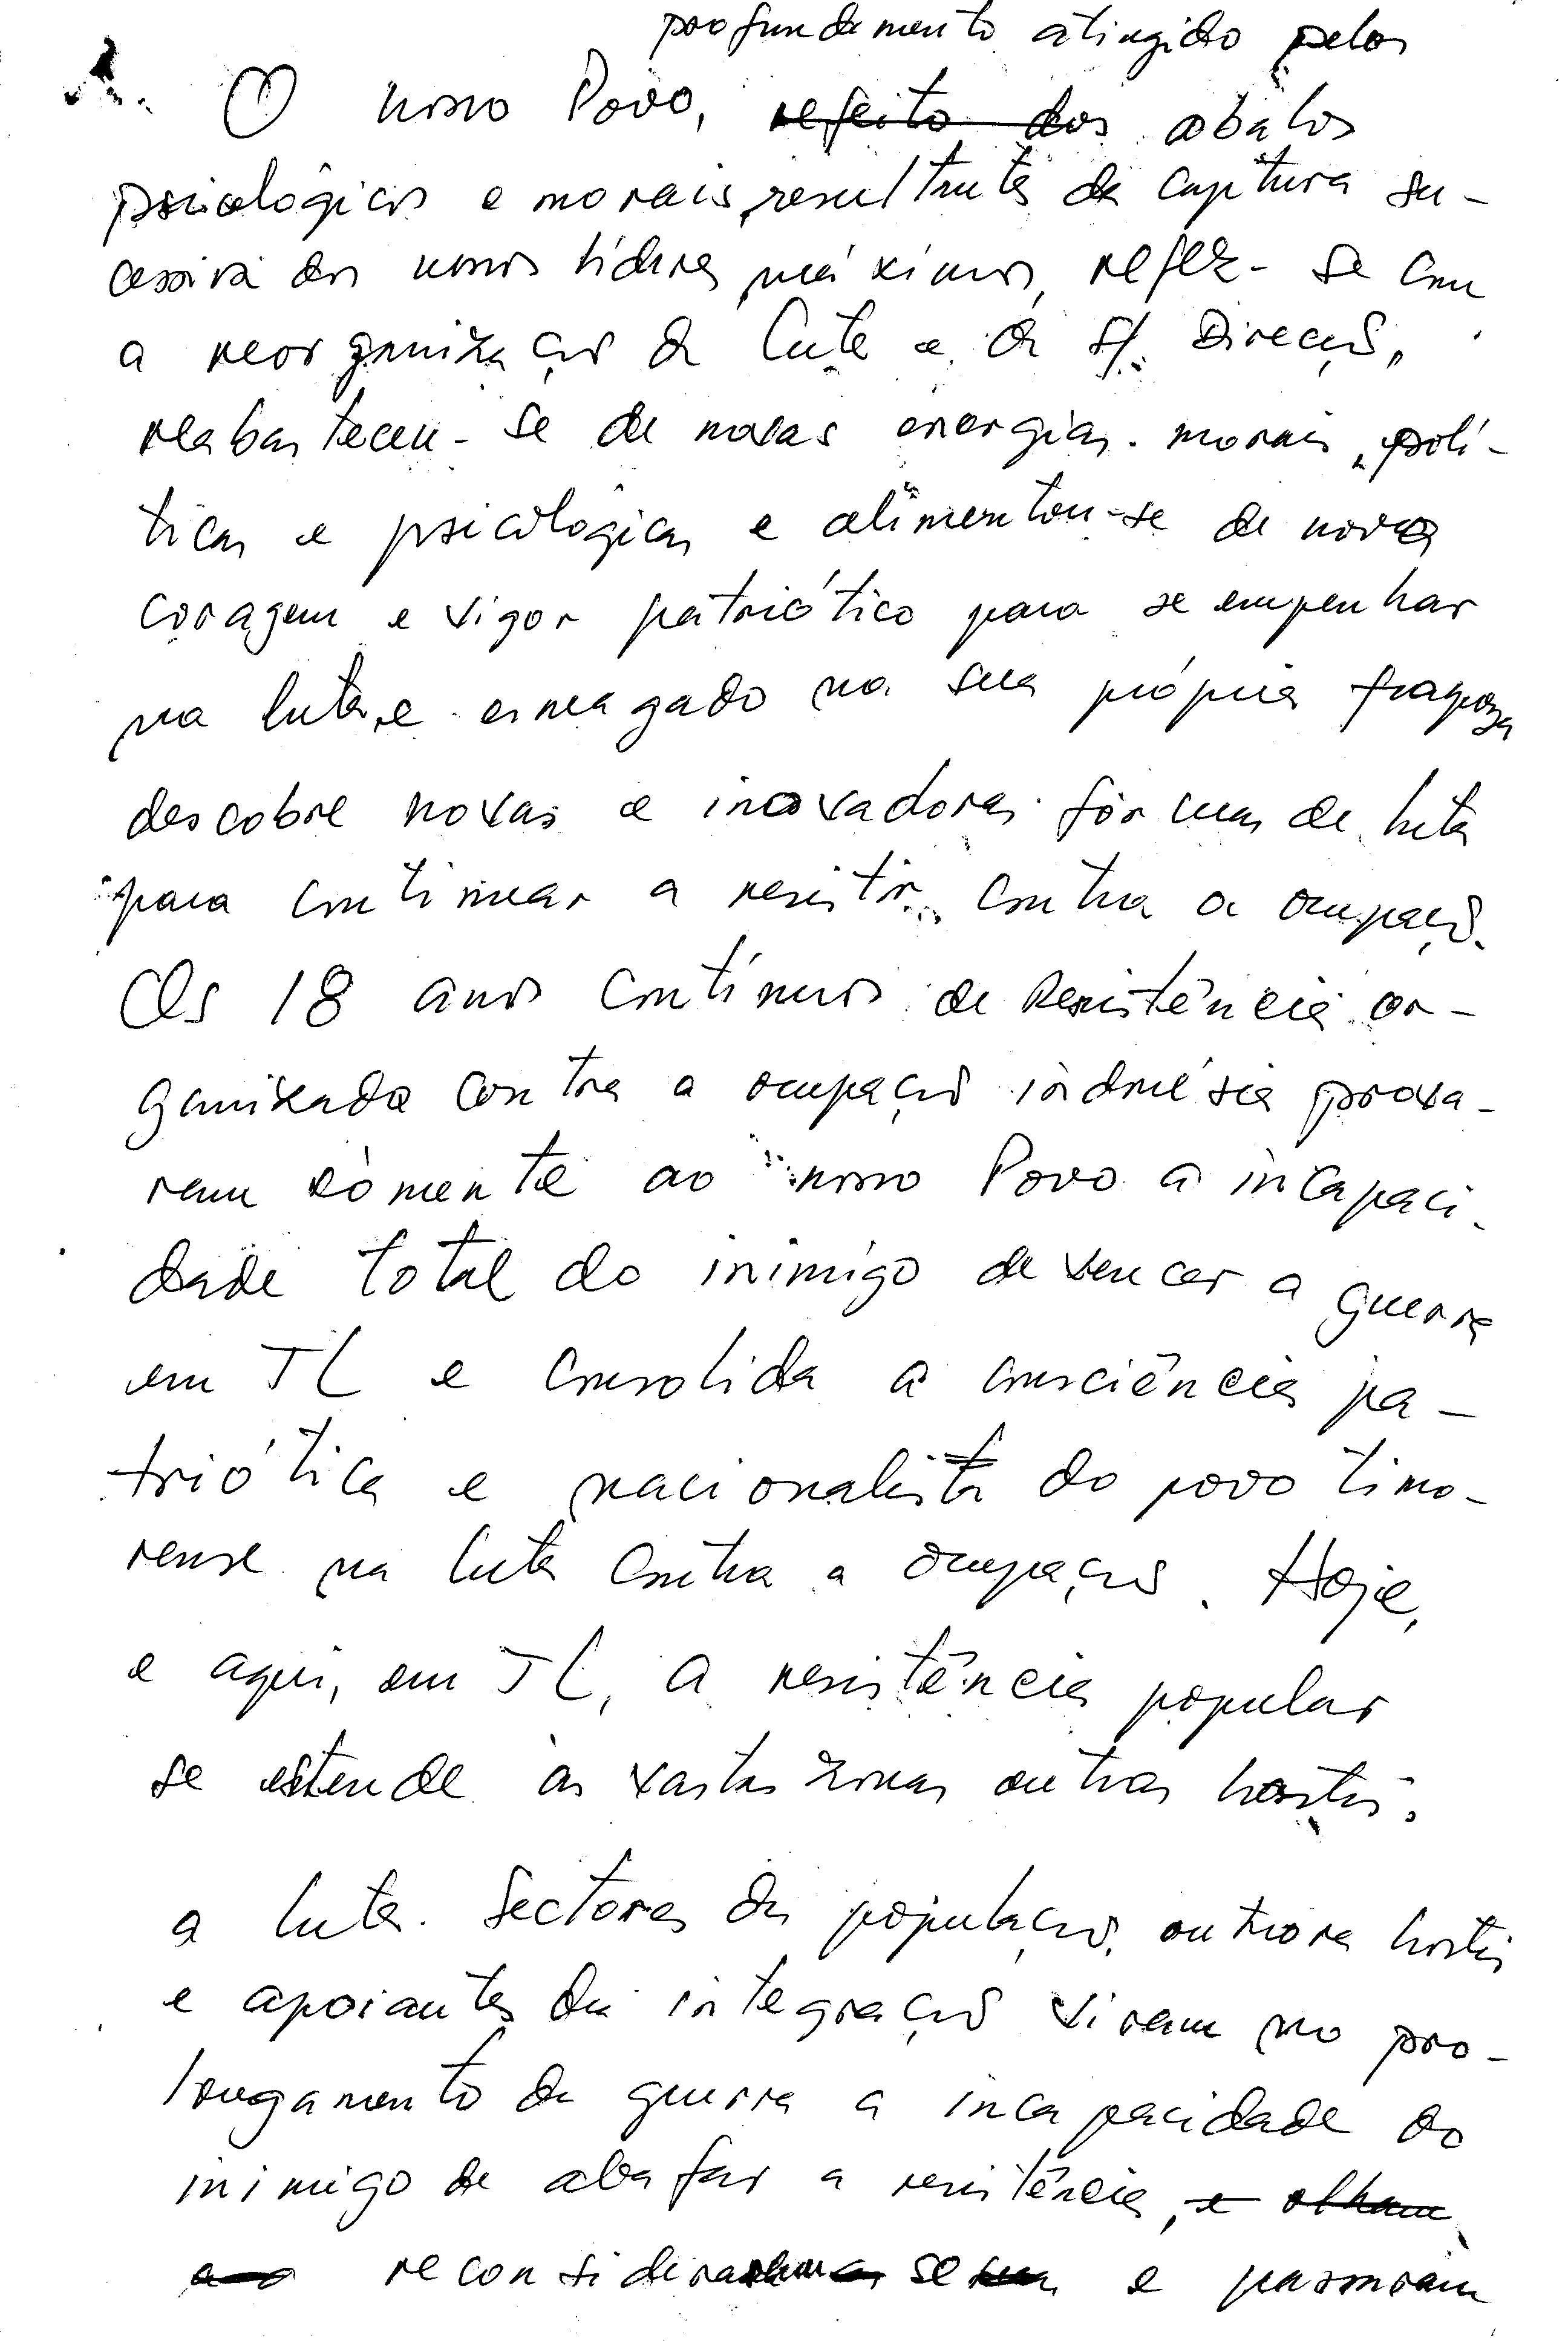 profundamente atingido pelos
1. O nosso Povo, refeito dos abalos
psicológicos e morais, resultante da captura su-
cessiva dos nossos líderes máximos, refez-se com
a reorganização da luta e da s/. Direcção,
reabasteceu-se de novas energias morais, polí-
ticas e psicológicas e alimentou-se de nova
coragem e vigor patriótico para se empenhar
na luta, e esmagado na sua própria fraqueza
descobre novas e inovadoras formas de luta
para continuar a resistir contra a ocupação.
Os 18 anos contínuos de Resistência or-
ganizada contra a ocupação indonésia prova-
ram sòmente ao nosso Povo a incapaci-
dade total do inimigo de vencer a guerra
em TL e consolida a consciência pa-
triótica e nacionalista do povo timo-
rense na luta contra a ocupação. Hoje,
e aqui, em TL, a resistência popular
se estende às vastas zonas outras hostis
a luta. Sectores da população, outrora hostis
e apoiantes da integração viram no pro-
longamento da guerra a incapacidade do
inimigo de abafar a resistência, e olham
reconsideraram se e passaram